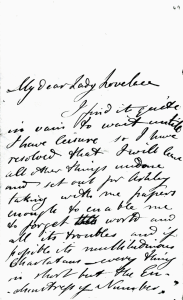 49
My dear Lady Lovelace
I find it quite
in vain to wait until
I have leisure so I have
resolved that I will leave
all other things undone
and set out for Ashley
taking with me papers
enough to enable me
to forget this world and
all its troubles and if
possible its multitudinous
Charlatans – every thing
in short but the En-
chantress of Number.